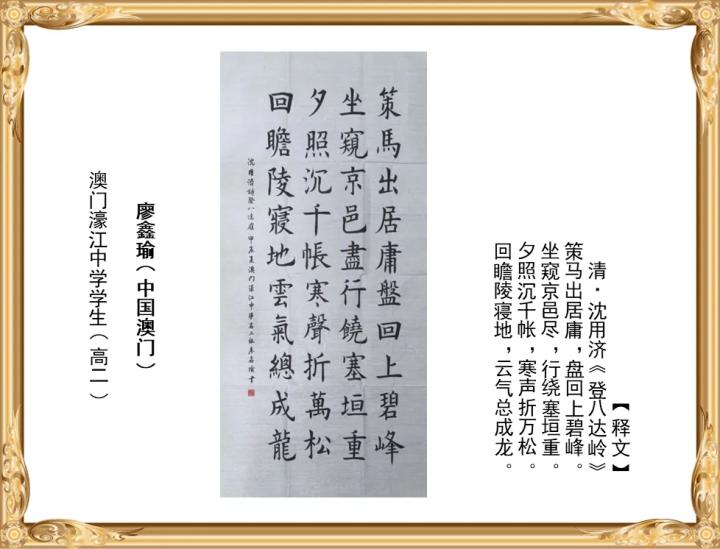 【释文】
清·沈用济《登八达岭》
策马出居庸，盘回上碧峰。
坐窥京邑尽，行绕塞垣重。
夕照沉千帐，寒声折万松。
回瞻陵寝地，云气总成龙。
策馬出居庸盤回上碧峰
坐窺京邑盡行饒塞垣重
夕照沉千帳寒聲折萬松
回瞻陵寢地雲氣總成龍
沈用濟詩登八達嶺 甲辰夏澳門濠江中學高二級廖鑫瑜書
廖鑫瑜（中国澳门）
澳门濠江中学学生（高二）